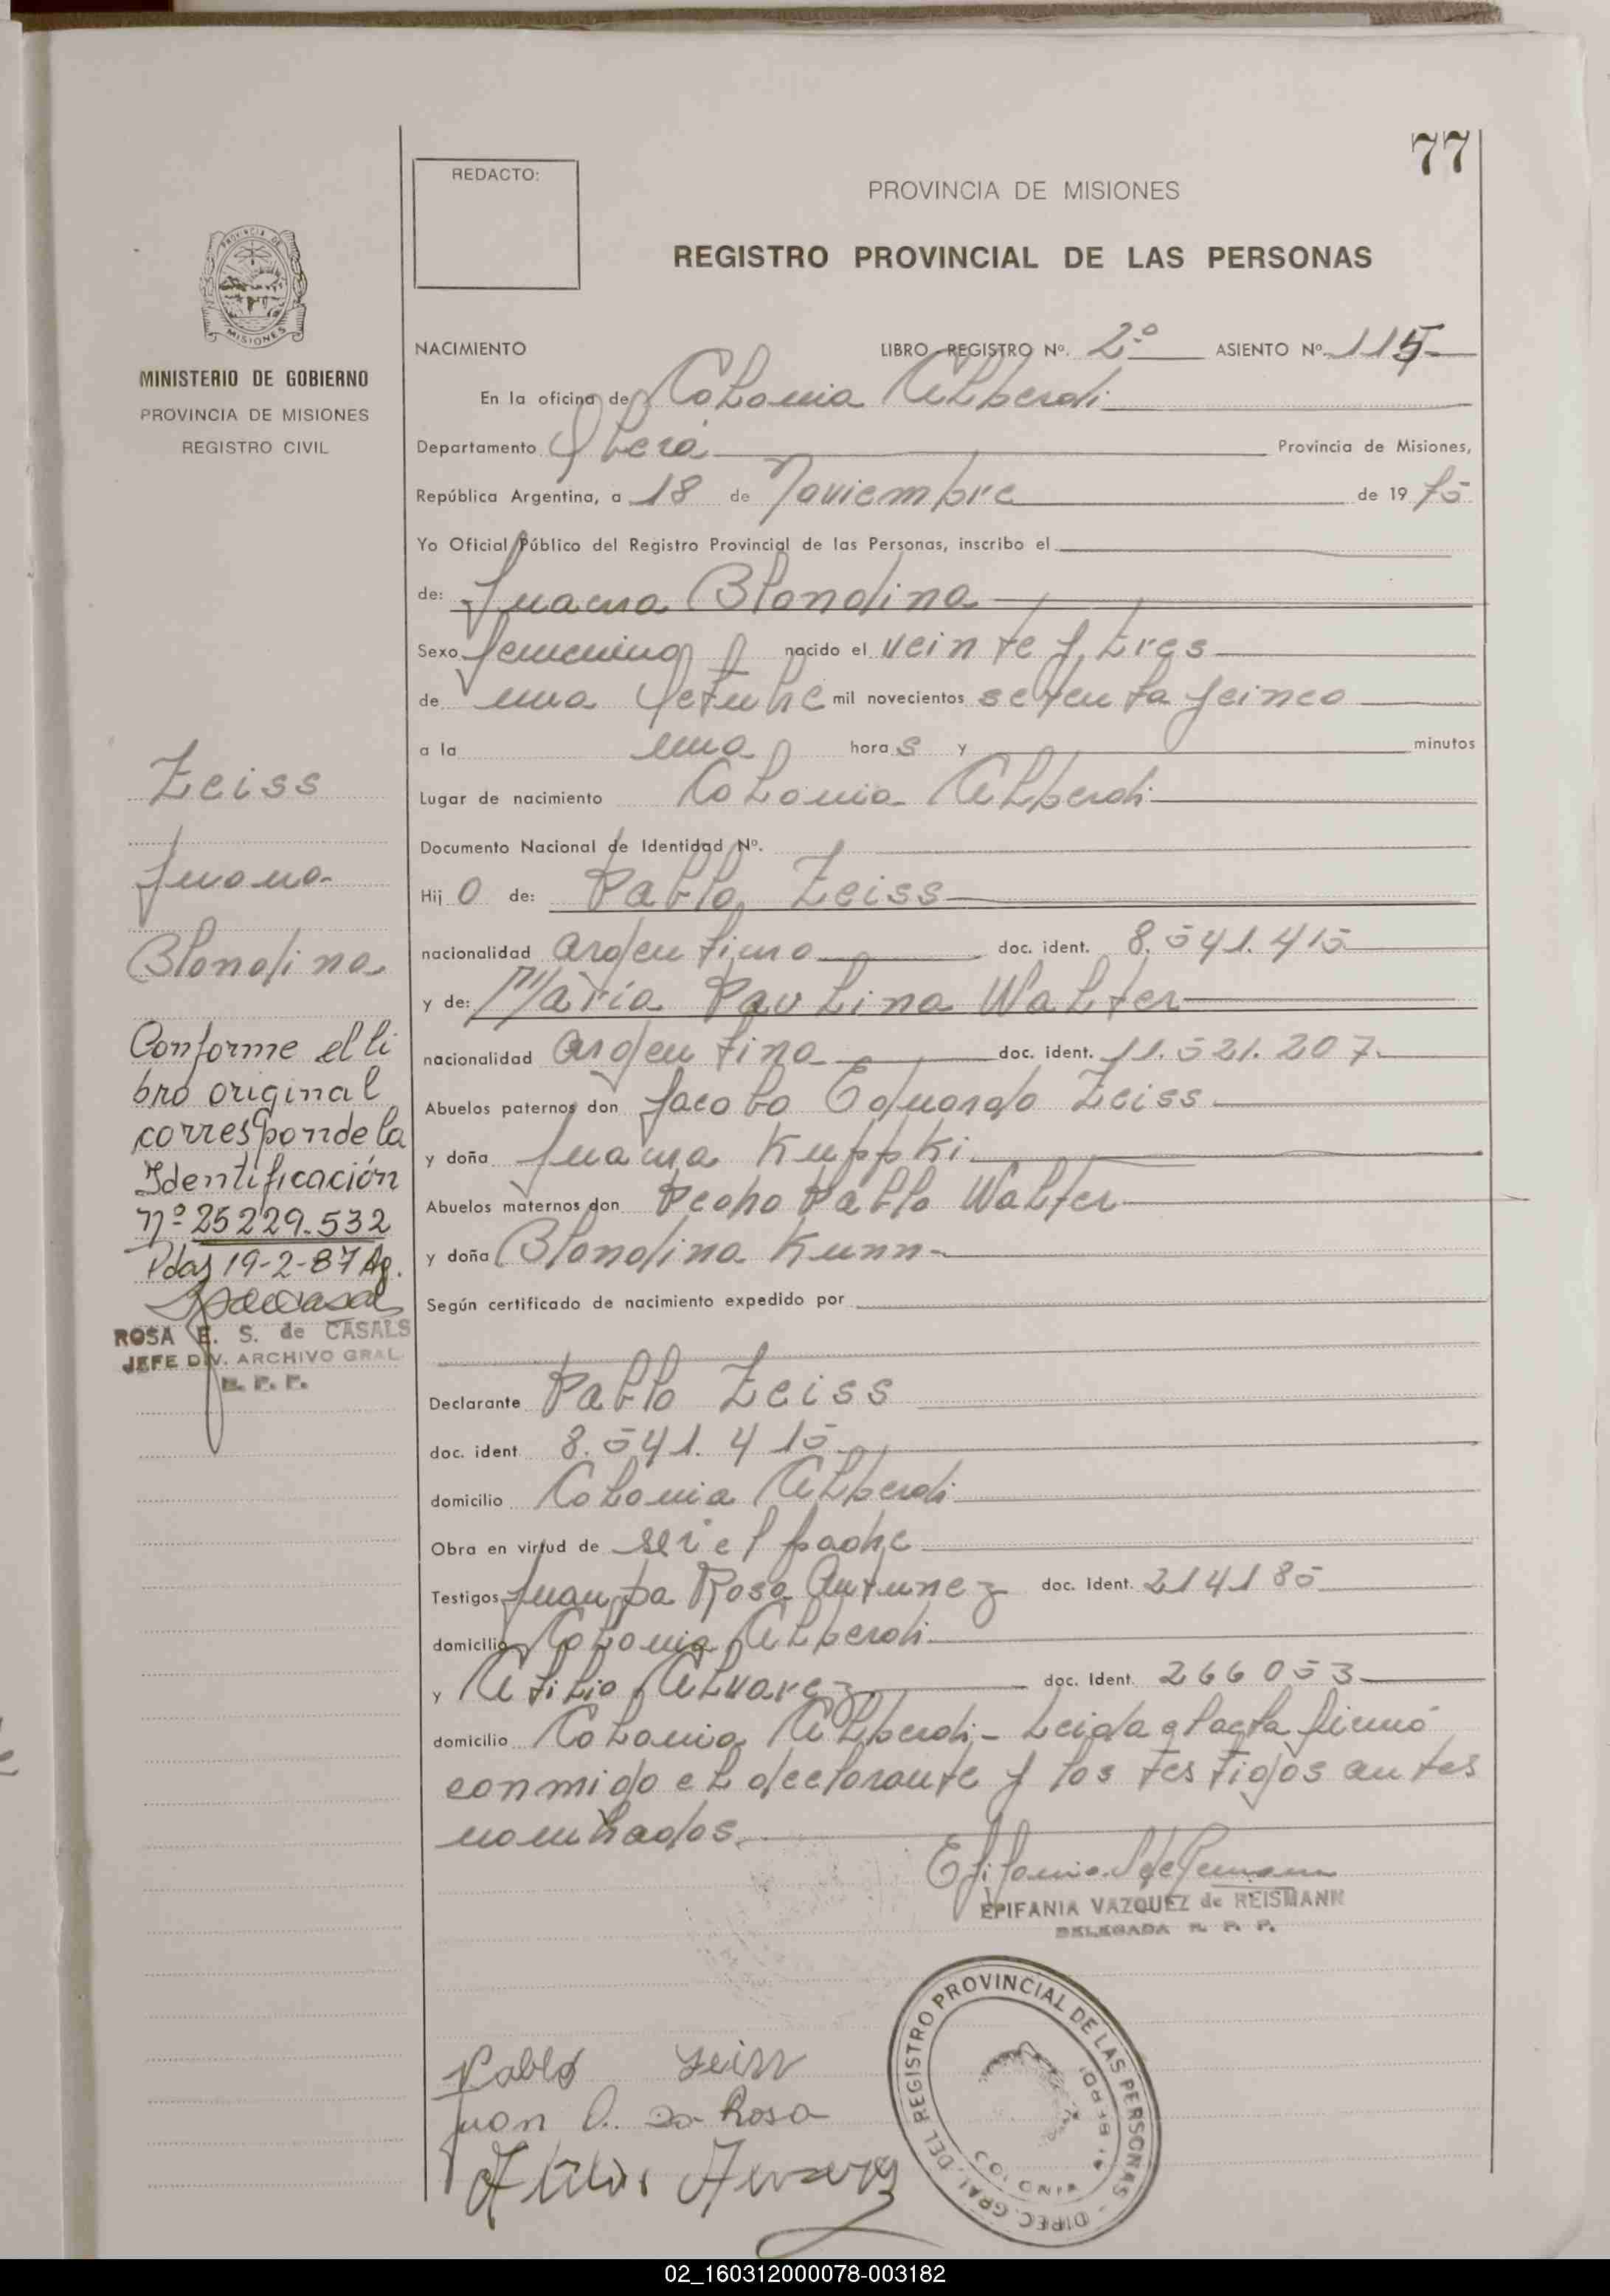 77
REDACTO:
PROVINCIA DE MISIONES
REGISTRO PROVINCIAL DE LAS PERSONAS
PROVINCIA DE
MISIONES
MINISTERIO DE GOBIERNO
PROVINCIA DE MISIONES
REGISTRO CIVIL
NACIMIENTO LIBRO REGISTRO Nº. 2º ASIENTO Nº. 115
En la oficina de Colonia Alberdi
Departamento Oberá Provincia de Misiones,
República Argentina, a 18 de Noviembre de 19 75
Yo Oficial Público del Registro Provincial de las Personas, inscribo el
de: Juana Blondina
Sexo femenino nacido el veinte y tres
de Octubre mil novecientos setenta y cinco
a la una hora s y minutos
Lugar de nacimiento Colonia Alberdi
Documento Nacional de Identidad Nº.
Hij o de: Pablo Zeiss
nacionalidad argentino doc. ident. 8.541.415
y de: María Paulina Walter
nacionalidad argentina doc. ident. 11.521.207
Abuelos paternos don Jacobo Eduardo Zeiss
y doña Juana Kuppki
Abuelos maternos don Pedro Pablo Walter
y doña Blondina Kunn
Según certificado de nacimiento expedido por
Declarante Pablo Zeiss
doc. ident. 8.541.415
domicilio Colonia Alberdi
Obra en virtud de ser el padre
Testigos Juan Da Rosa Antunez doc. Ident. 2141185
domicilio Colonia Alberdi
y Atilio Alvarez doc. Ident. 266053
domicilio Colonia Alberdi - Leida el acta firmó
conmigo el declarante y los testigos antes
nombrados.
EPIFANIA VAZQUEZ de REISMANN
DELEGADA R. P. P.
Zeiss
Juana
Blondina
Conforme el li
bro original
corresponde la
Identificación
nº 25229.532
Pdas 19-2-87
ROSA E. S. de CASALS
JEFE DIV. ARCHIVO GRAL.
R. P. P.
Pablo Zeiss
Juan A. Da Rosa
Atilio Alvarez
DIREC. GRAL. DEL REGISTRO PROVINCIAL DE LAS PERSONAS
02_160312000078-003182